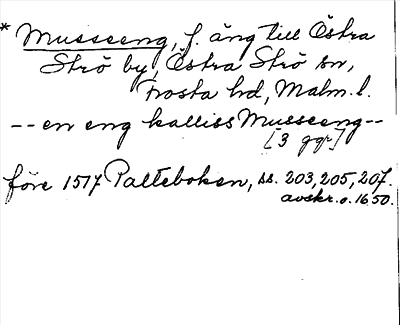 * Musseeng, f. äng till Östra
Strö by, Östra Strö sn,
Frosta hd, Malm. l.
-- en eng kalliss Musseeng --
[3 ggr]
före 1517 Palteboken, ss. 203, 205, 207.
avskr. o. 1650.